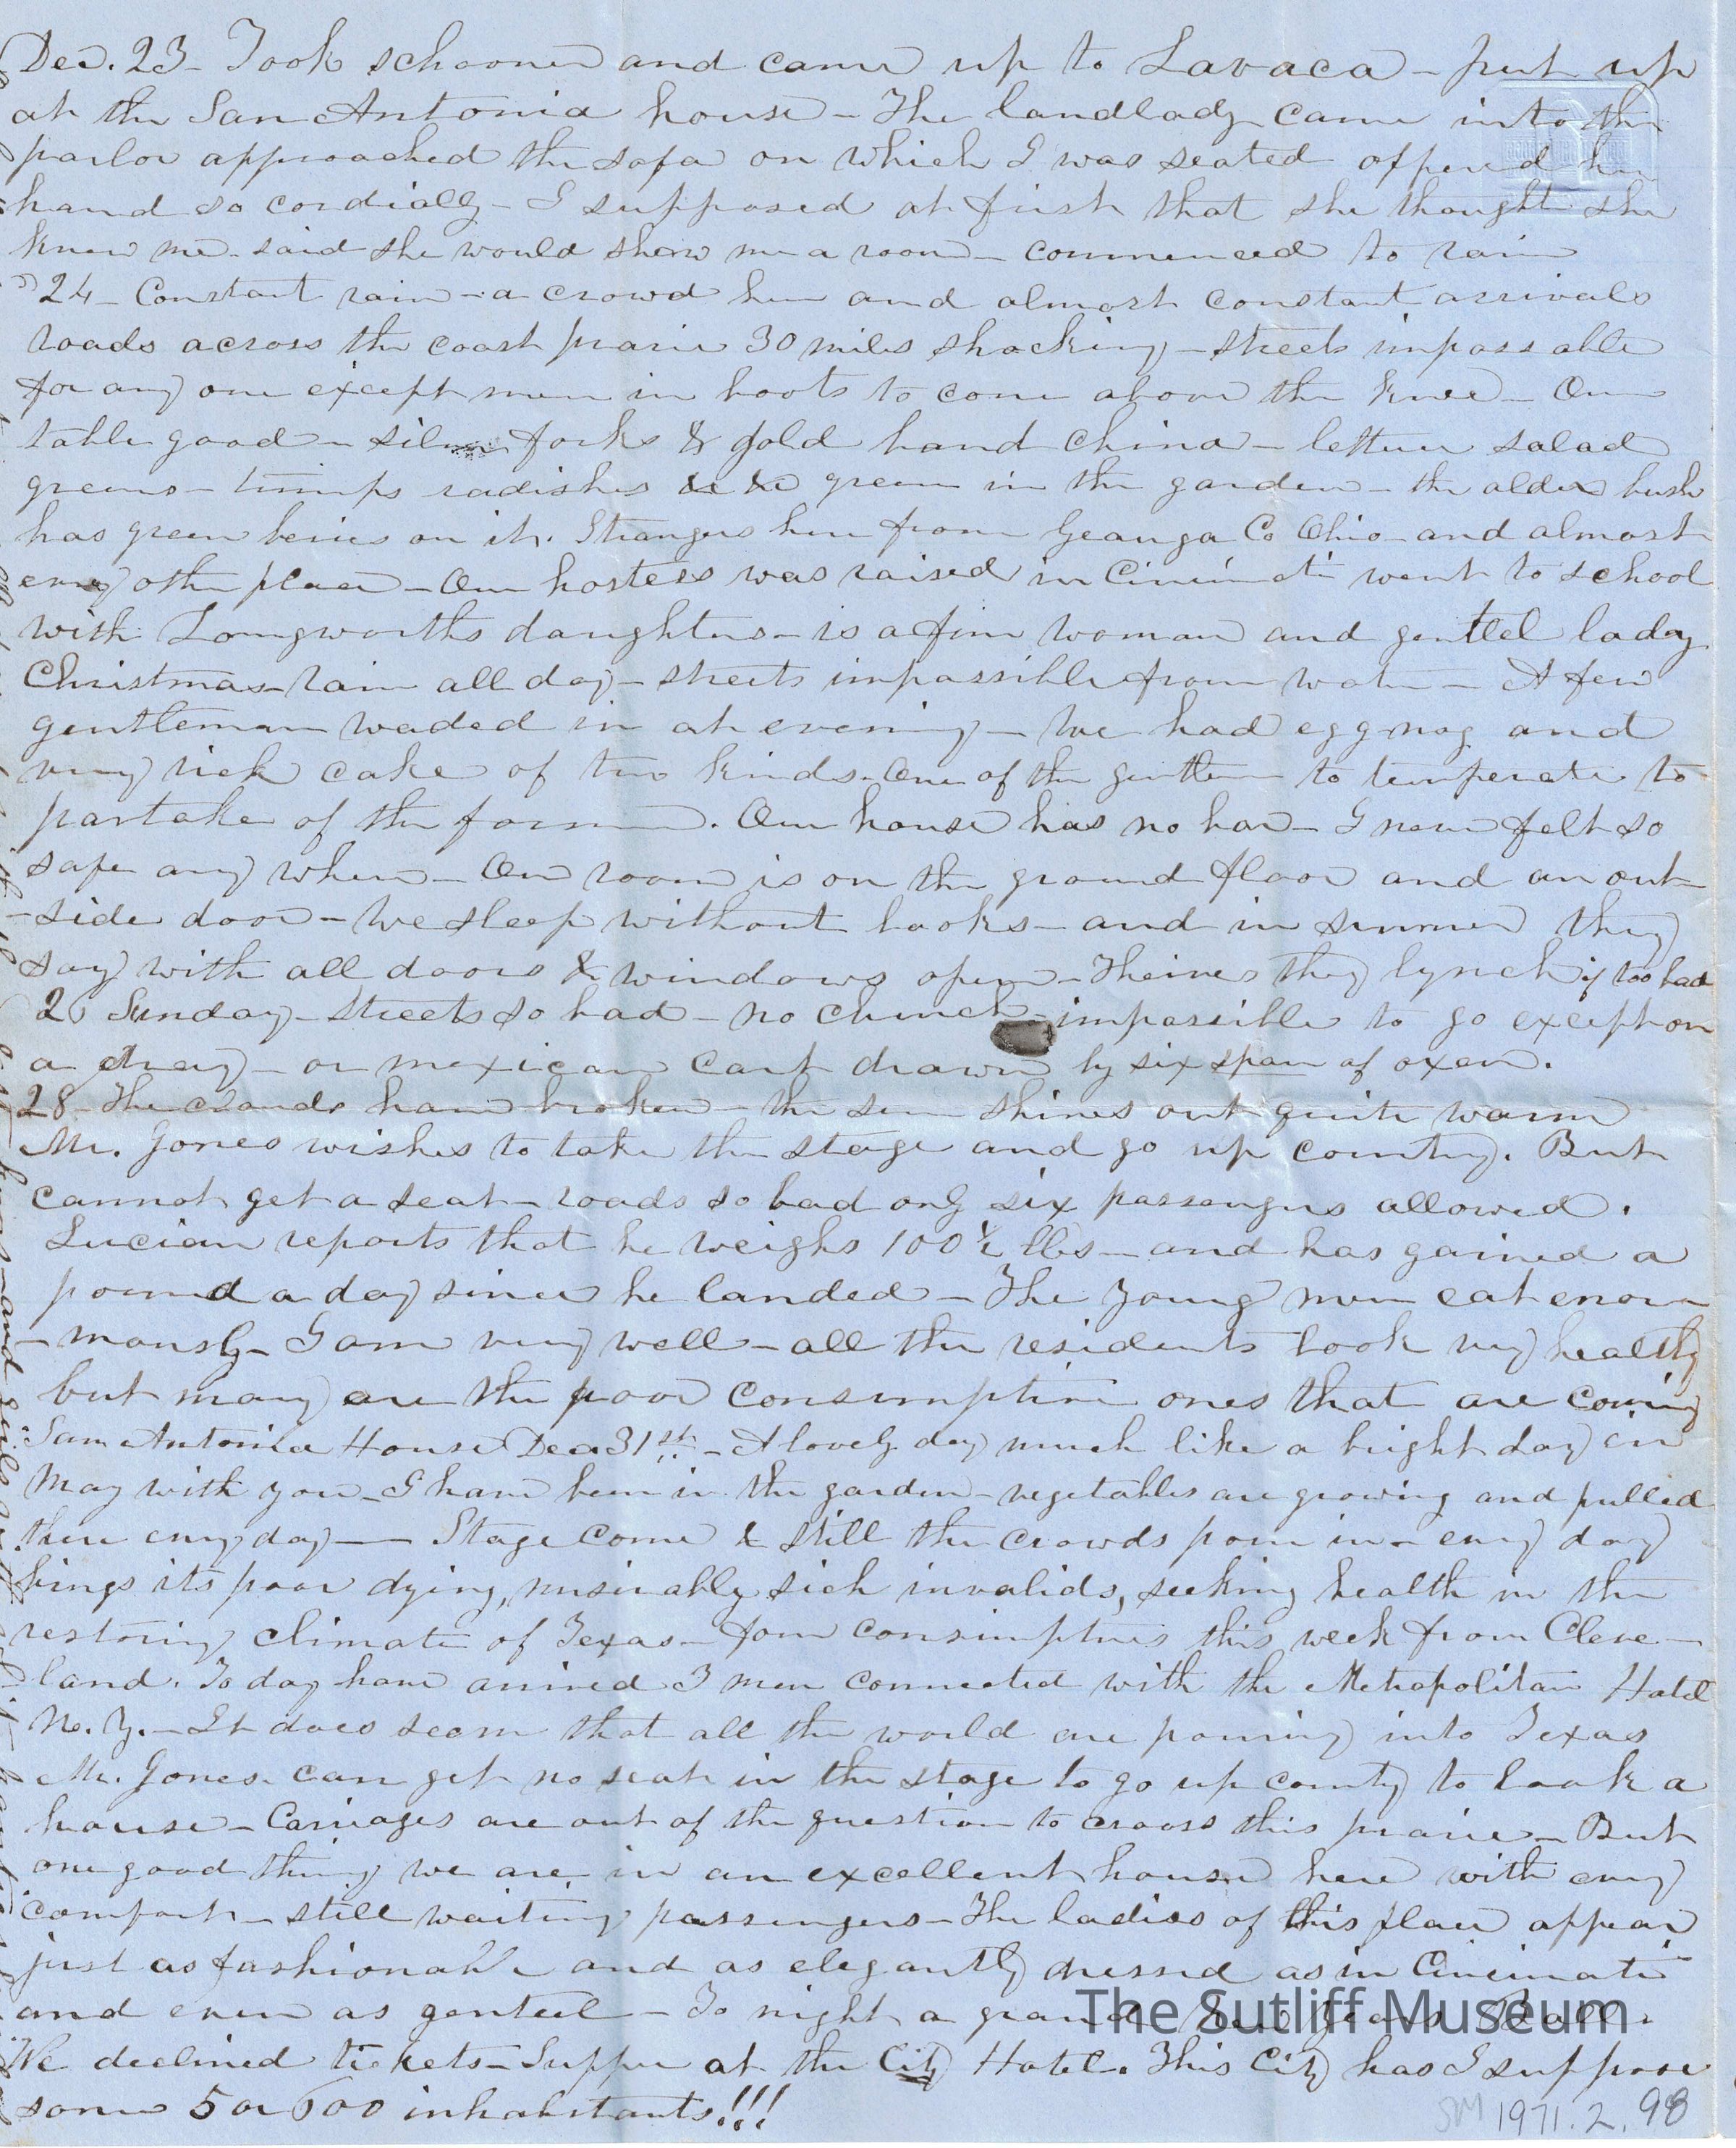 Dec. 23 - Took schooner and came up to Lavaca - put up
at the San Antonia house - The landlady came into the
parlor approached the sofa on which I was seated offered her
hand so cordially - I supposed at first that she thought she
knew me - said she would show me a room - commenced to rain
" 24 - Constant rain - a crowd here and almost constant arrivals
roads across the coast prairie 30 miles shocking - streets impassable
for any one except men in boots to come above the knee - Our
table good - silver forks & gold band china - lettuce salad
greens - turnips radishes &c &c green in the garden - the alder bush
has green berries on it. Strangers here from Geauga Co Ohio - and almost
every other place - Our hostess was raised in Cincinati went to school
with Longworths daughters - is a fine woman and genteel lady
Christmas - rain all day - streets impassible from water - A few
gentleman waded in at evening - We had eggnog and
very rich cake of two kinds. One of the gentlemen to temperate to
partake of the former. Our house has no bar - I never felt so
safe any where - Our room is on the ground floor and an out
-side door - We sleep without locks - and in summer they
say with all doors & windows open - Theives they lynch if too bad
26 Sunday - Streets so bad - no church - impossible to go except on
a dray - or mexican cart drawn by six span of oxen.
28 - The clouds have broken - the sun shines out quite warm
Mr. Jones wishes to take the stage and go up country. But
cannot get a seat - roads so bad only six passengers allowed.
Lucian reports that he weighs 100 1/2 lbs - and has gained a
pound a day since he landed - The young men eat enor
- mously - I am very well - all the residents look very healthy
but many are the poor consumptive ones that are coming
San Antonia House Dec 31st - A lovely day much like a bright day in
May with you - I have been in the garden - vegetables are growing and pulled
there every day - Stage come & still the crowds pour in - every day
brings its poor dying, miserably sick invalids, seeking health in the
restoring climate of Texas - four consumptives this week from Cleve-
land. To day have arrived 3 men connected with the Metropolitan Hotel
N. Y. - It does seem that all the world are pouring into Texas
Mr. Jones can get no seat in the stage to go up country to look a
house - Carriages are out of the question to cross this prairie - But
one good thing we are in an excellent house here with every
comfort - still waiting passengers - The ladies of this place appear
just as fashionable and as elegantly dressed as in Cincinati
and even as genteel - To night a grand New Years Ball.
We declined tickets - Supper at the City Hotel. This City has I suppose
some 5 or 600 inhabitants!!!
The Sutliff Museum
SM 1971.2.98